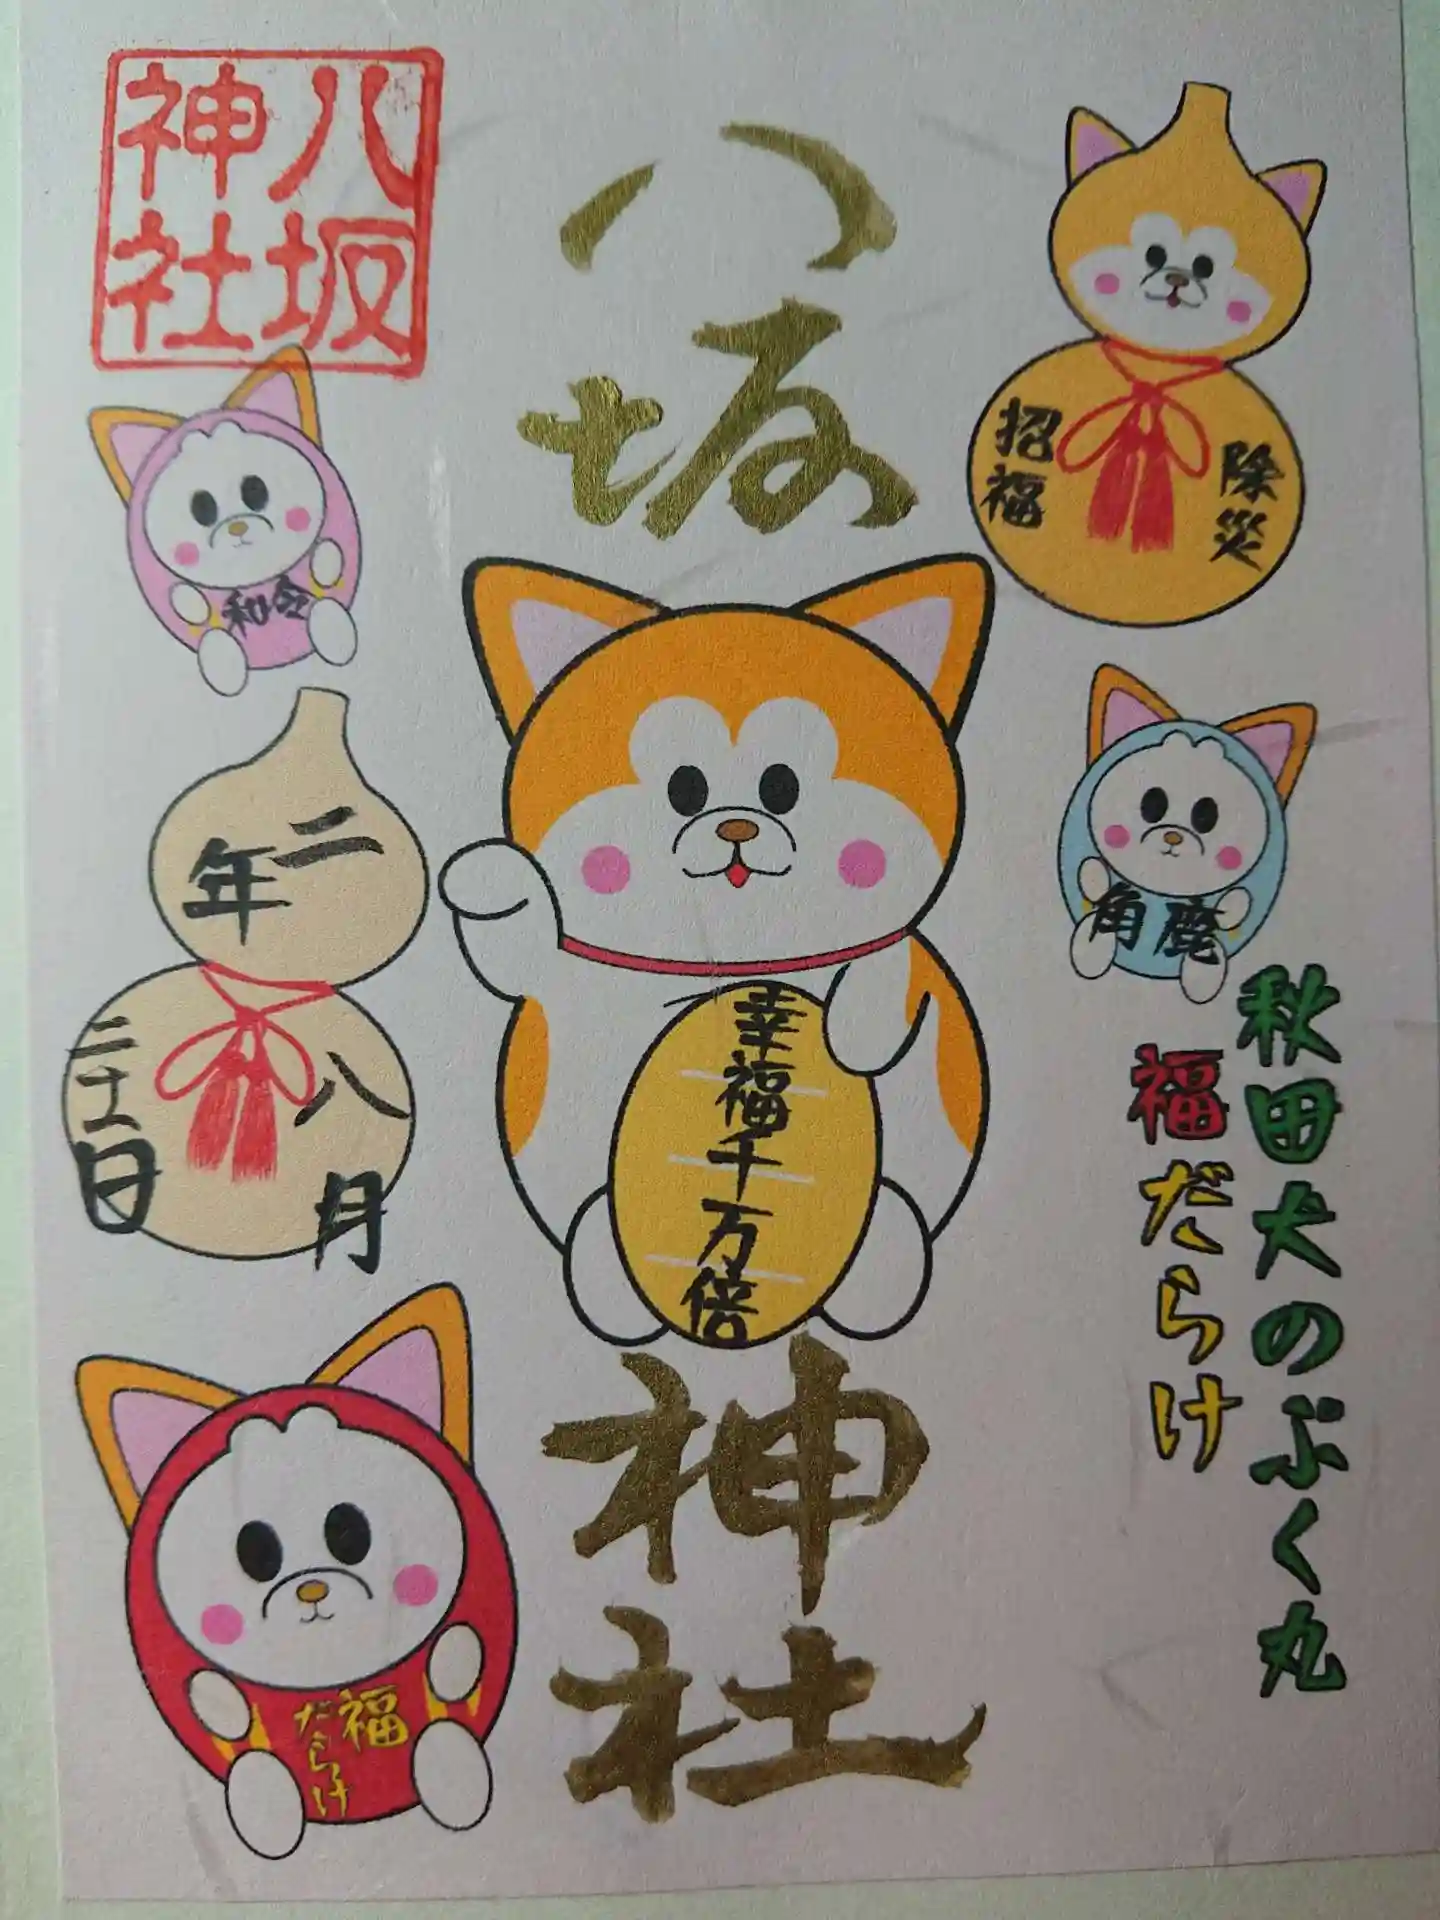 八坂
神社
八坂
神社
除災
招福
令和
鹿角
二年
八月
二十二日
幸福千万倍
秋田犬のぷく丸
福だらけ
福
だらけ